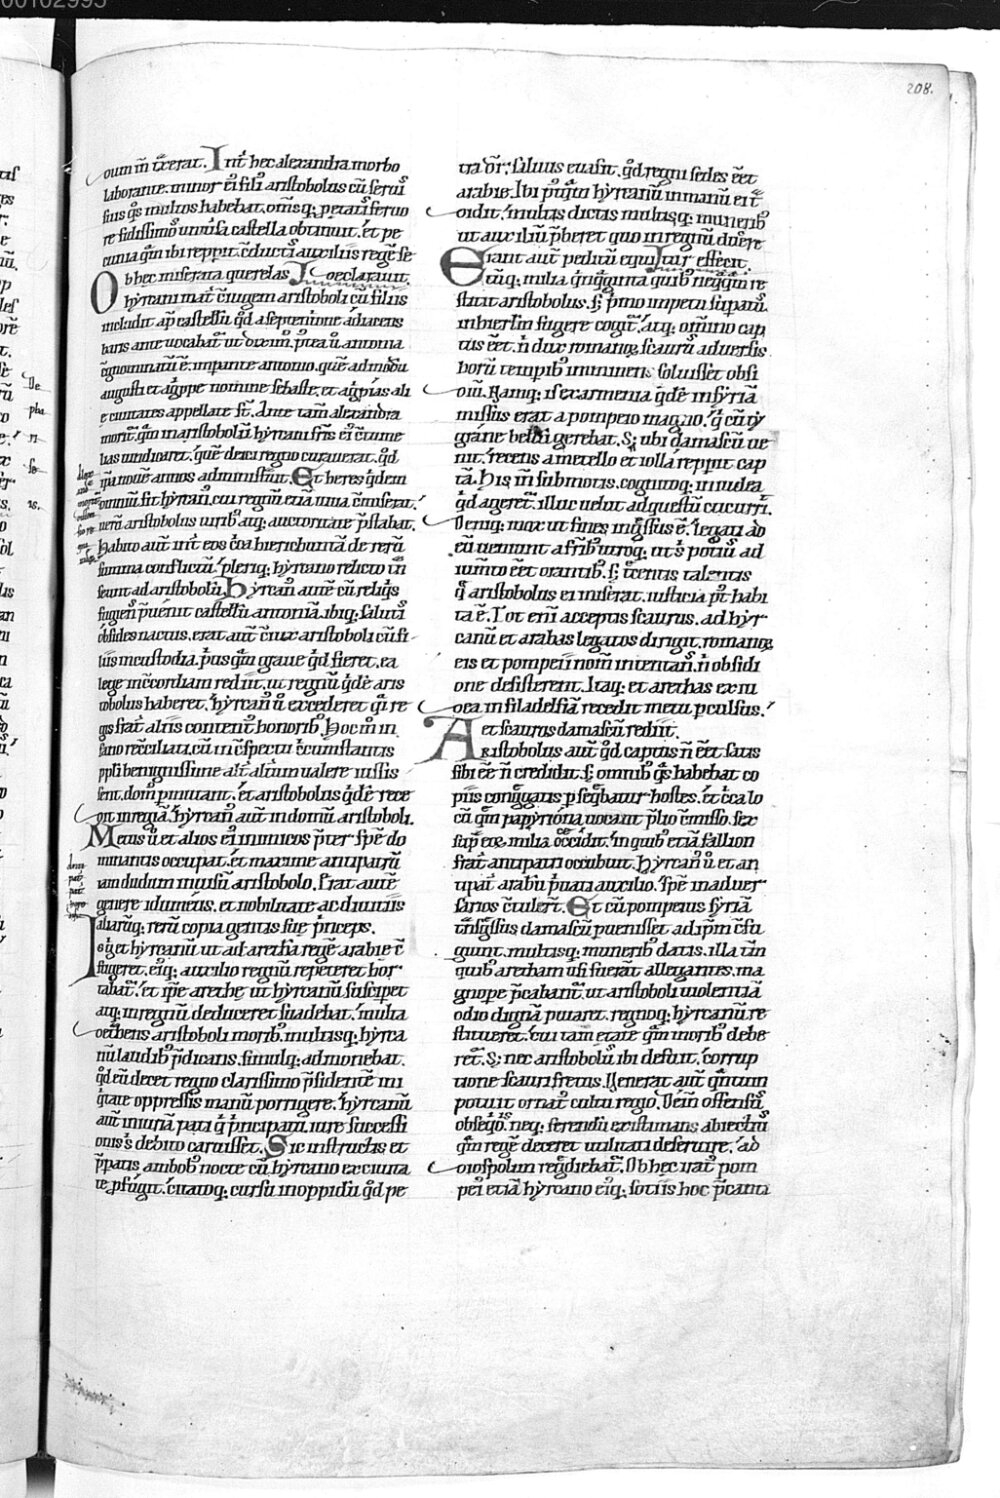 208.
dum m̄ t̄xerat. Int̄ hec alexandra morbo
laborante. minor ei᷒ fili᷒ aristobolus cū serui᷒
suis q̄s multos habebat. om̄sq; petat᷒i feruo
re fidissimo᷒ uniū͛sa castella obtinuit. et pe
cunia q̄m ibi repp̄it. c̄ducti᷒ auxiliis regē se
Ob hec miserata querelas declarauit.
hẏrcani mat̄ c̄iugem aristoboli cū filiis
includit ap᷒ castellū q̄d a septentrione adiacens
baris ante uocabat᷒ ut diximꝰ. postea u᷒ antonia
c̄gnominatū ē. imp̄ante antonio. quē admodū
augusti et ag̓ppe nomine sebaste. et ag̓pias alie
e ciuitates appellate st̄. Ante tam̄ alexandra
morit᷒. q̄m in aristobolū hẏrcani fr̄is ei᷒ c̄tume
lias uindicaret. quē deici regno curauerat. q̄d
ip̄a nouē annos administ᷒uit. Et heres q̄dem
omniū fit hẏrcan᷒. cui regnū etiā uiua c̄miserat.
uerū aristobolus uirib᷒ atq; auctoritate p̄stabat.
habito aut̄ int̄ eos c̄ca hierichuntā de rerū
summa conflictu. pleriq; hẏrcano relicto t̄n
seunt ad aristobolū. Hẏrcan᷒ autē cū reliq̓s
fugien᷒ p̄uenit castellū antoniā. ibiq; salutis
obsides nactus. erat aut̄ c̄iux aristoboli cū fi
liis in custodia. p᷒us q̄m graue q̄d fieret. ea
lege in c̄cordiam rediit. ut regnū q̄dē aris
tobolus haberet. hẏrcan᷒ u᷒ excederet q᷒i re
gis frat̄ aliis content᷒ honorib᷒. Hoc m̄ in
fano rec̄ciliati. cū in c̄spectu c̄cumstantis
pp̄li benignissime alt̄ alt̄um ualere iussis
sent. dom᷒ p̄mutant. et aristobolus q̄dē rece
dit in regiā. hẏrcan᷒ aut̄ in domū aristoboli.
Metus u᷒ et alios ei᷒ inimicos p̄ter spē do
minantis occupat. et maxime antipatrū
iam dudum inuisū aristobolo. Erat autē
genere idumeus. et nobilitate ac diuitiis
aliarūq; rerū copia gentis sue p̓nceps.
Is g᷒ et hẏrcanū ut ad arethā regē arabie c̄
fugeret. eiq; auxilio regnū repeteret hor
tabat᷒. et ip̄e arethe ut hẏrcanū suscip̄et
atq; in regnū deduceret suadebat. multa
detrahens aristoboli morib᷒. multisq; hẏrca
nū laudib᷒ p̄dicans. simulq; admonebat.
q̄d eū decet regno clarissimo p̄sidentē ini
q̓tate oppressis manū porrigere. hẏrcanū
aut̄ iniuriā pati q̓ p̓ncipatu iure successi
onis s᷒ debito caruisset. Sic instructis et
p̄patis ambob᷒ nocte cū hẏrcano ex ciuita
te p̄fugit. citatoq; cursu in oppidū q̄d pe
tra dr̄. saluus euasit. q̄d regni sedes eēt
arabie. Ibi postq̄m hẏrcanū in manū ei᷒ t̄
didit. multis dictis multisq; munerib᷒
ut auxiliū p̄beret quo in regnū ducere
Erant aut̄ peditū equitūq; tur effecit.
milia q̓nq̓ginta quib᷒ neq̄q̄m re
stitit aristobolus. s; p̓mo impetu supatus
in hierl̄m fugere cogit᷒. atq; om̄ino cap
tus eēt. n̄ dux romanoꝝ scaurus aduersis
horū temporib᷒ imminens soluisset obsi
diū. Namq; is ex armenia q̄dē in sẏriā
missus erat a pompeio magno. q̓ cū tẏ
grane bellū gerebat. S; ubi damascū ue
nit. recens a metello et lollia rep̄pit cap
tā. His m̄ submotis. cognitoq; in iudea
q̓d ageret᷒. illuc uelut ad questū cucurrit.
Deniq; mox ut fines ingressus ē. legati ad
eū ueniunt a frib᷒ utroq; ut s᷒ potius ad
iumto eēt orantib᷒. s; t̄centis talentis
q̄ aristobolus ei miserat. iusticia post habi
ta ē. Tot eni᷒ acceptis scaurus. ad hẏr
canū et arabas legatos dirigit. romanos
eis et pompeiū nom̄ intentans. n̄ obsidi
one desisterent. Itaq; et arethas ex iu
dea in filadelfiā recedit metu p̄culsus.
et scaurus damascū rediit.
Aristobolus aut̄ q̄d captus n̄ eēt satis
sibi eē n̄ credidit. s; omnib᷒ q̄s habebat co
piis cong̓gatis p̄seq̄bat᷒ hostes. et c̄ca lo
cū q̄m papẏriona uocant p̄lio c̄misso. sex
sup᷒ eoꝝ milia occidit. in quib᷒ etiā fallion
frat̄ antipatri occubuit. Hẏrcan᷒ u᷒ et an
tipat̄ arabū p̄uati auxilio. spē in aduer
sarios c̄tulert̄. Et cū pompeius sẏriā
t̄nsg̓ssus damascū p̄uenisset. ad ip̄m c̄fu
giunt. multisq; munerib᷒ datis. illa etiā
quib᷒ aretham usi fuerāt allegantes. ma
gnop̄e p̄cabant᷒. ut aristoboli uiolentiā
odio dignā putaret. regnoq; hẏrcanū re
stitueret. cui tam etate q̄m morib᷒ debe
ret᷒. S; nec aristobolus ibi defuit. corrup
tione scauri fretus. Venerat aut̄ q̄ntum
potuit ornat᷒ cultu regio. Dein offensus
obseq̓o. neq; ferendū existimans abiectius
q̄m regē deceret utilitati deseruire. ab
diospolun regrediebat᷒. Ob hec irat᷒ pom
pei᷒ etiā hẏrcano eiq; sociis hoc p̄canti